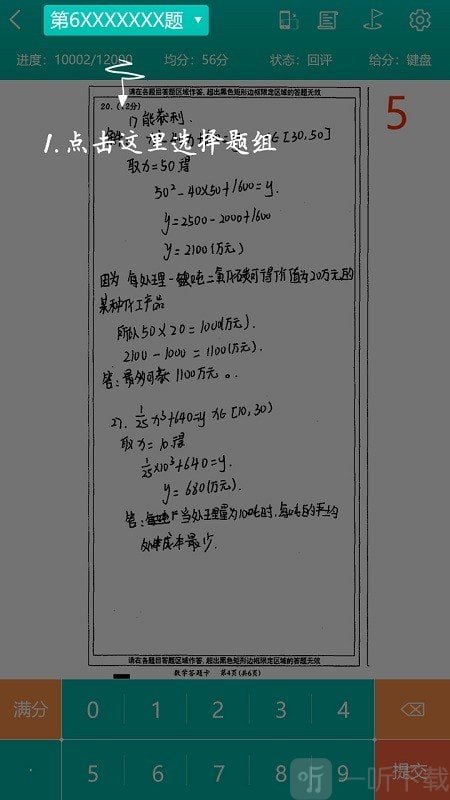 第6XXXXXXX题
进度：10002/12000 均分：56分 状态：回评 给分：键盘
请在各题目答题区域作答,超出黑色矩形边框限定区域的答题无效
5
20.(12分)
1.点击这里选择题组
[30,50]
取x=50得
50²-40×50+1600=y.
y=2500-2000+1600
y=2100(万元)
因为 每处理一吨二氧化碳可得价值为20万元的
某种化工产品
所以50×20=1000(万元).
2100-1000=1100(万元).
1100万元。
1/25 x³+640=y x∈[10,30)
取x=10.得
1/25×10³+640=y.
y=680(万元).
处理成本最少.
请在各题目答题区域作答,超出黑色矩形边框限定区域的答题无效
数学答题卡 第4页(共6页)
满分 0 1 2 3 4
· 5 6 7 8 9 提交
一听下载